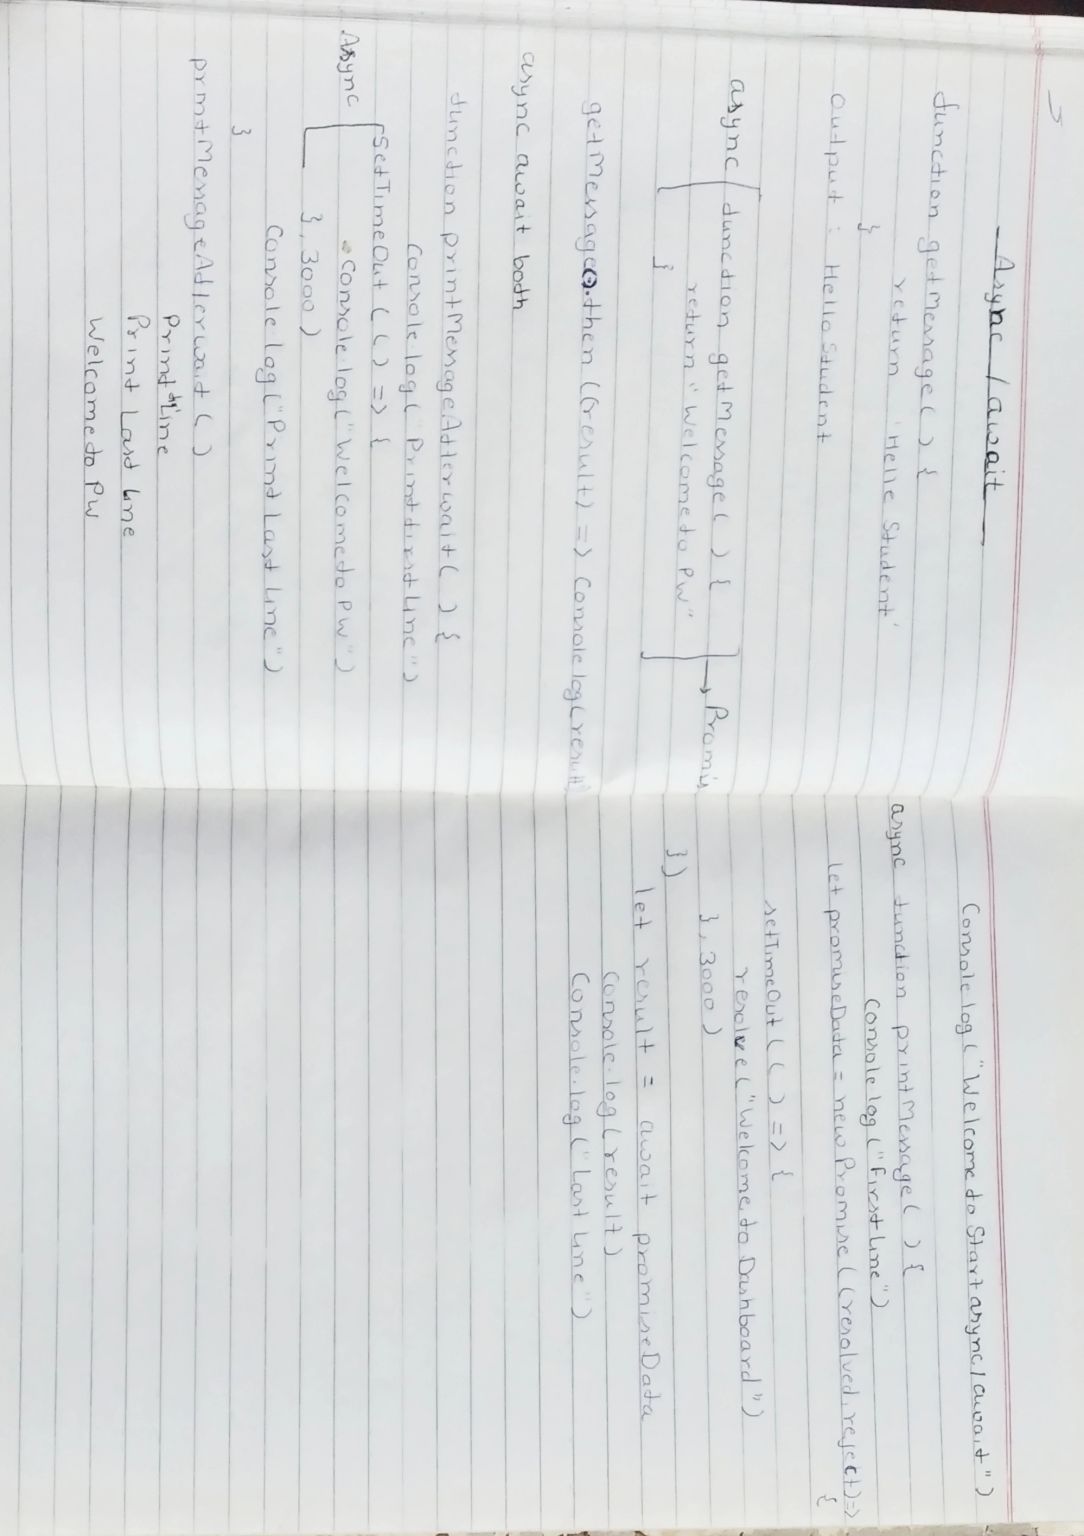 Async / await
function getMessage( ) {
return 'Hello Student'
}
Output : Hello Student
async function getMessage( ) {
return "Welcome to PW"
}
→ Promis
getMessage().then ((result) => Console log(result)
async await both
function printMessageAfterwait( ) {
Console.log("Print first Line")
Async
SetTimeOut ( ( ) => {
Console.log("Welcome to PW")
}, 3000 )
Console log("Print Last Line")
}
printMessageAfterwait ( )
Print 1st Line
Print Last Line
Welcome to PW
Console log ("Welcome to Start async / await")
async function printMessage( ) {
Console log ("First Line")
let promiseData = new Promise((resolved, reject) =>
{
setTimeOut( ( ) => {
resolve ("Welcome to Dashboard")
}, 3000 )
})
let result = await promiseData
Console.log(result)
Console.log("Last Line")